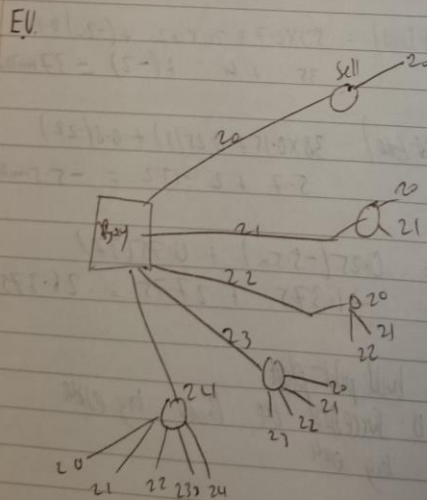 E.V.
Sell
20
20
20
21
Buy
21
22
20
21
22
23
20
21
22
23
24
20
21
22
23
24